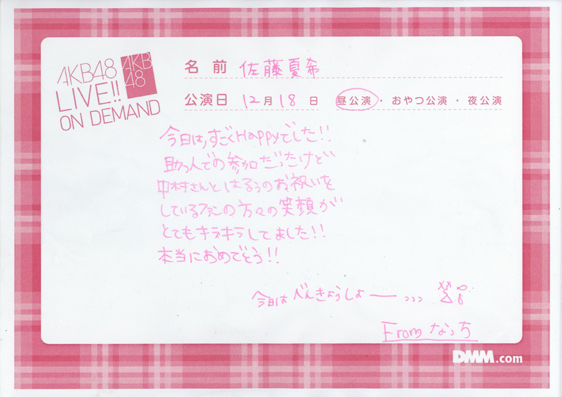 AKB48
LIVE!!
ON DEMAND
AKB
48
名前 佐藤夏希
公演日 12月18日 昼公演・おやつ公演・夜公演
今日は、すごくHappyでした!!
助っ人での参加だったけど
中村さんとはるぅのお祝いを
しているファンの方々の笑顔が
とてもキラキラしてました!!
本当におめでとう!!
今日はべんきょうしよー、、、
Fromなっち
DMM.com